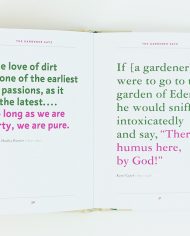 THE GARDENER SAYS
e love of dirt
one of the earliest
passions, as it
the latest. . . .
o long as we are
rty, we are pure.
THE GARDENER SAYS
If [a gardener]
were to go to t
garden of Eden
he would sniff
intoxicatedly
and say, “Ther
humus here,
by God!”